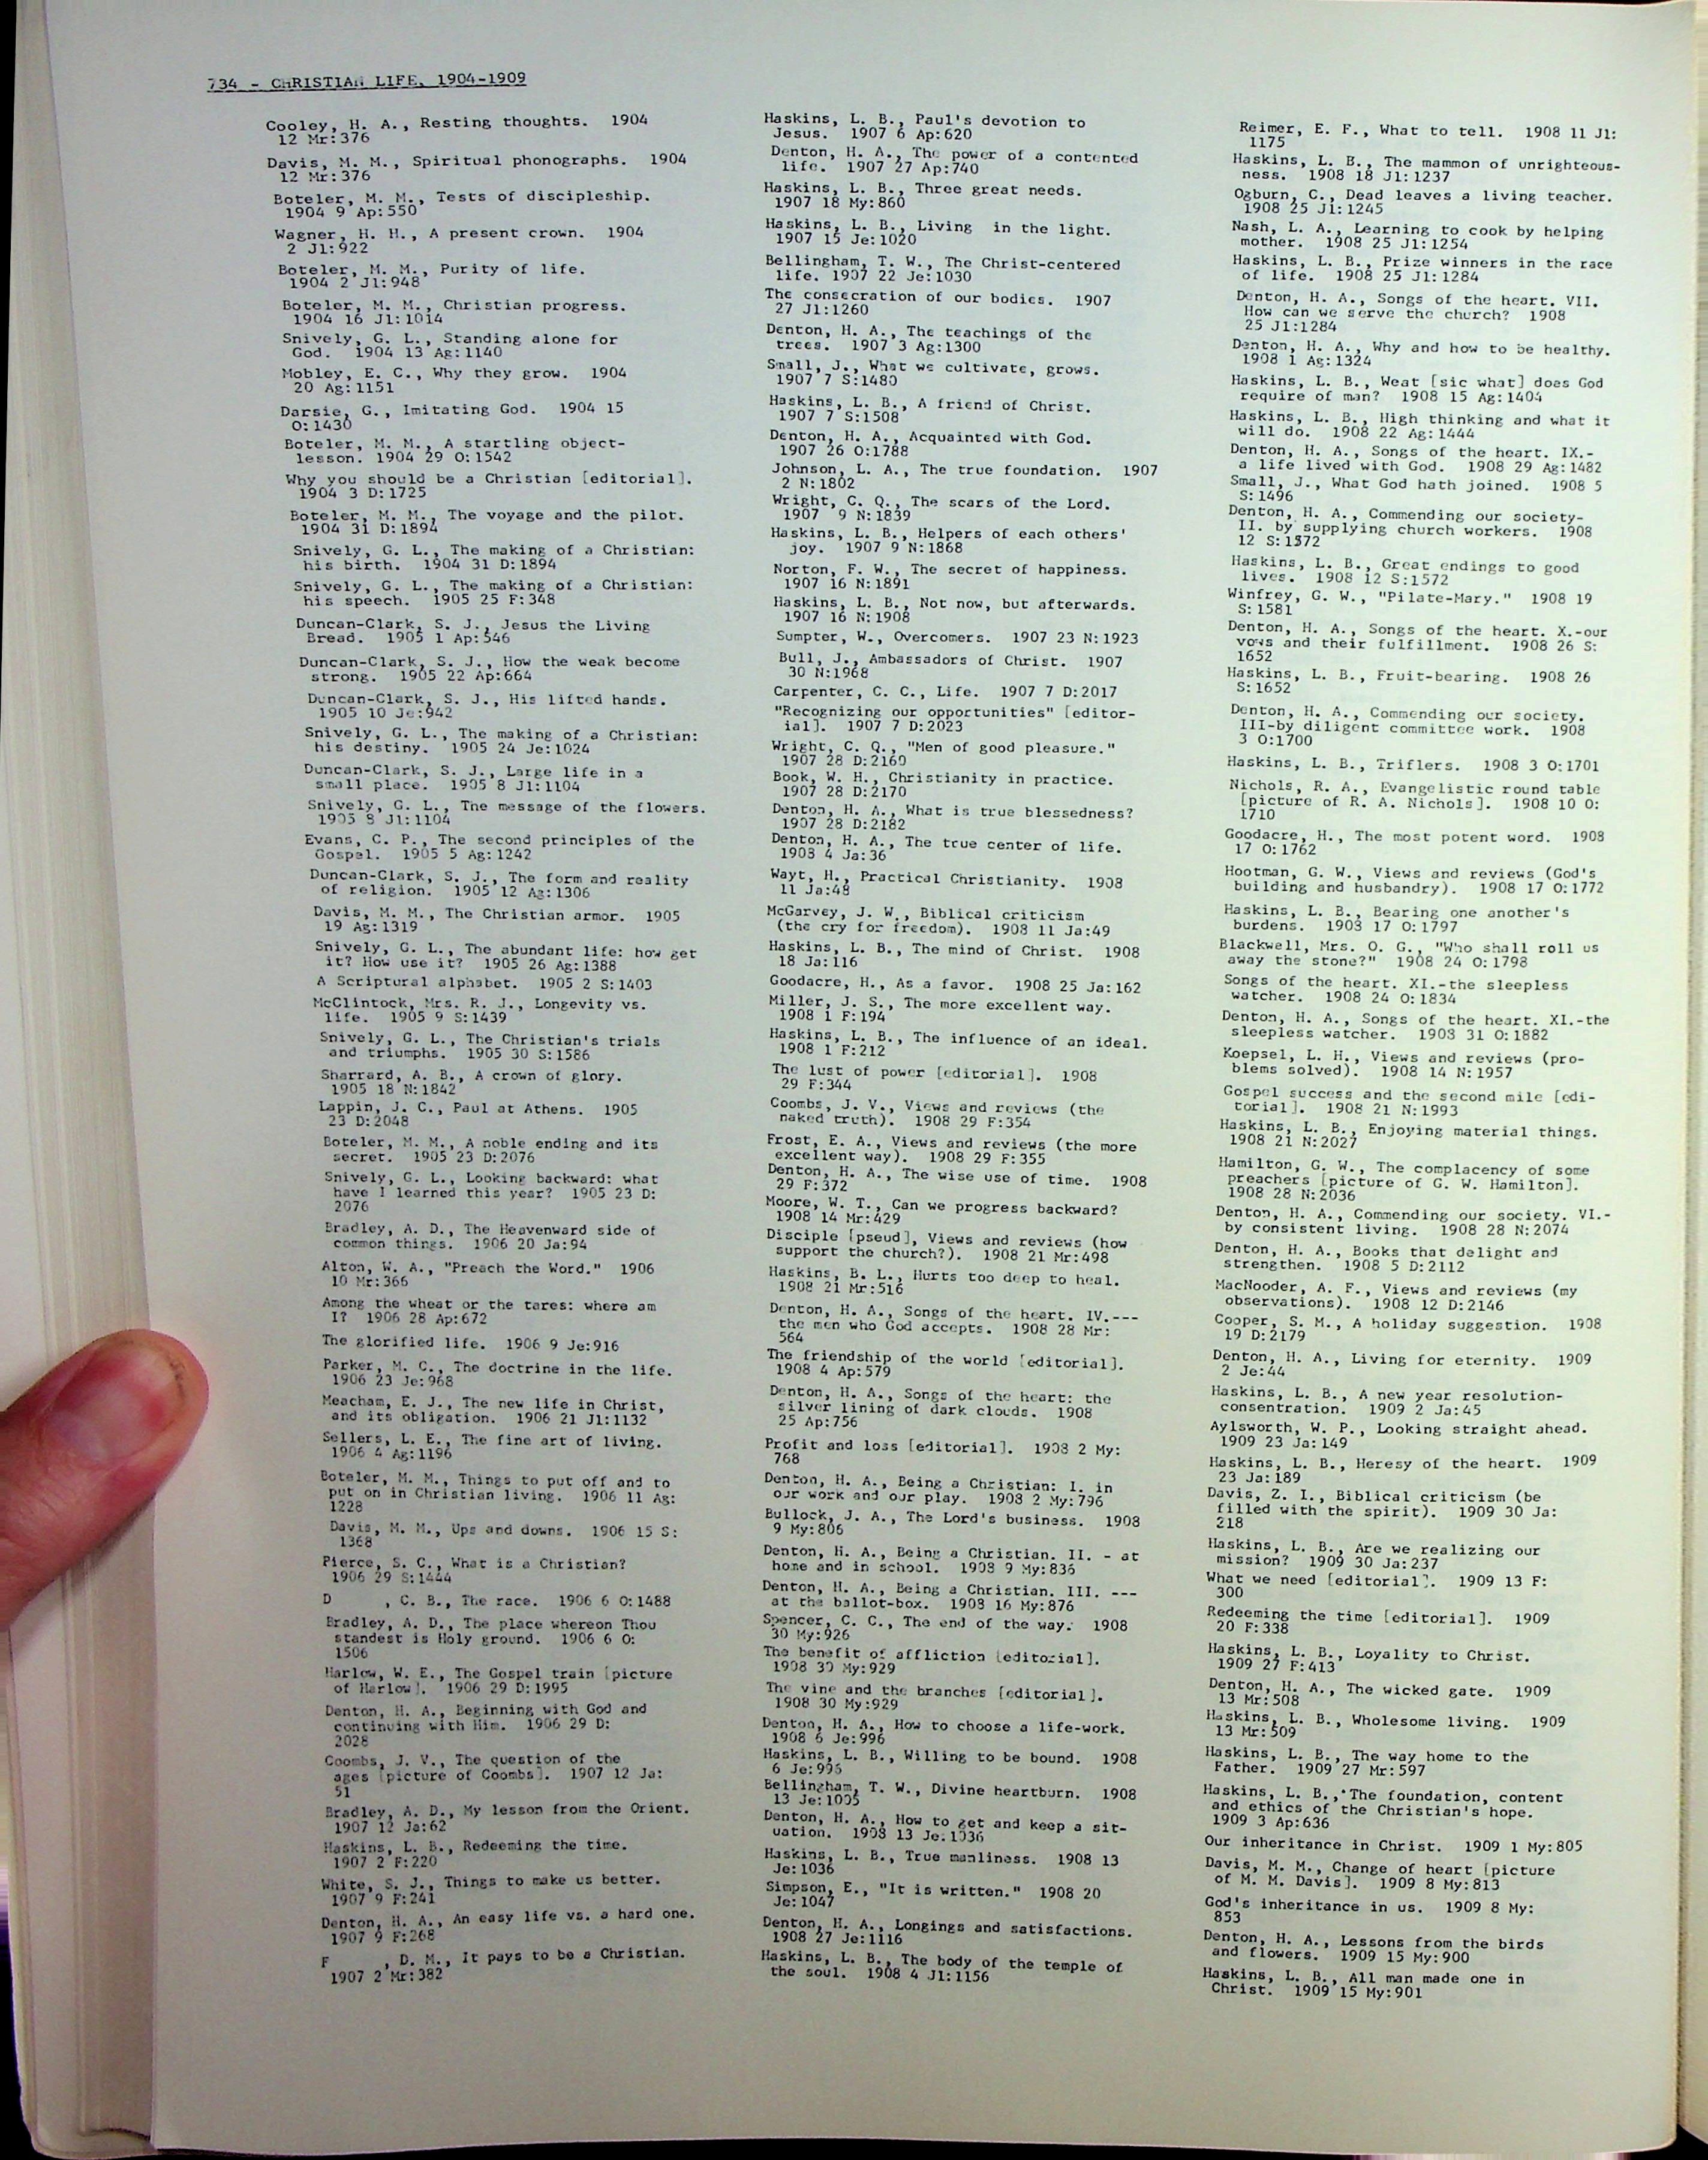 734 - CHRISTIAN LIFE, 1904-1909
Cooley, H. A., Resting thoughts. 1904
12 Mr:376
Davis, M. M., Spiritual phonographs. 1904
12 Mr:376
Boteler, M. M., Tests of discipleship.
1904 9 Ap:550
Wagner, H. H., A present crown. 1904
2 Jl:922
Boteler, M. M., Purity of life.
1904 2 Jl:948
Boteler, M. M., Christian progress.
1904 16 Jl:1014
Snively, G. L., Standing alone for
God. 1904 13 Ag:1140
Mobley, E. C., Why they grow. 1904
20 Ag:1151
Darsie, G., Imitating God. 1904 15
O:1430
Boteler, M. M., A startling object-
lesson. 1904 29 O:1542
Why you should be a Christian [editorial].
1904 3 D:1725
Boteler, M. M., The voyage and the pilot.
1904 31 D:1894
Snively, G. L., The making of a Christian:
his birth. 1904 31 D:1894
Snively, G. L., The making of a Christian:
his speech. 1905 25 F:348
Duncan-Clark, S. J., Jesus the Living
Bread. 1905 1 Ap:546
Duncan-Clark, S. J., How the weak become
strong. 1905 22 Ap:664
Duncan-Clark, S. J., His lifted hands.
1905 10 Je:942
Snively, G. L., The making of a Christian:
his destiny. 1905 24 Je:1024
Duncan-Clark, S. J., Large life in a
small place. 1905 8 Jl:1104
Snively, G. L., The message of the flowers.
1905 8 Jl:1104
Evans, C. P., The second principles of the
Gospel. 1905 5 Ag:1242
Duncan-Clark, S. J., The form and reality
of religion. 1905 12 Ag:1306
Davis, M. M., The Christian armor. 1905
19 Ag:1319
Snively, G. L., The abundant life: how get
it? How use it? 1905 26 Ag:1388
A Scriptural alphabet. 1905 2 S:1403
McClintock, Mrs. R. J., Longevity vs.
life. 1905 9 S:1439
Snively, G. L., The Christian's trials
and triumphs. 1905 30 S:1586
Sharrard, A. B., A crown of glory.
1905 18 N:1842
Lappin, J. C., Paul at Athens. 1905
23 D:2048
Boteler, M. M., A noble ending and its
secret. 1905 23 D:2076
Snively, G. L., Looking backward: what
have I learned this year? 1905 23 D:
2076
Bradley, A. D., The Heavenward side of
common things. 1906 20 Ja:94
Alton, W. A., "Preach the Word." 1906
10 Mr:366
Among the wheat or the tares: where am
I? 1906 28 Ap:672
The glorified life. 1906 9 Je:916
Parker, M. C., The doctrine in the life.
1906 23 Je:968
Meacham, E. J., The new life in Christ,
and its obligation. 1906 21 Jl:1132
Sellers, L. E., The fine art of living.
1906 4 Ag:1196
Boteler, M. M., Things to put off and to
put on in Christian living. 1906 11 Ag:
1228
Davis, M. M., Ups and downs. 1906 15 S:
1368
Pierce, S. C., What is a Christian?
1906 29 S:1444
D , C. B., The race. 1906 6 O:1488
Bradley, A. D., The place whereon Thou
standest is Holy ground. 1906 6 O:
1506
Harlow, W. E., The Gospel train [picture
of Harlow]. 1906 29 D:1995
Denton, H. A., Beginning with God and
continuing with Him. 1906 29 D:
2028
Coombs, J. V., The question of the
ages [picture of Coombs]. 1907 12 Ja:
51
Bradley, A. D., My lesson from the Orient.
1907 12 Ja:62
Haskins, L. B., Redeeming the time.
1907 2 F:220
White, S. J., Things to make us better.
1907 9 F:241
Denton, H. A., An easy life vs. a hard one.
1907 9 F:268
F , D. M., It pays to be a Christian.
1907 2 Mr:382
Haskins, L. B., Paul's devotion to
Jesus. 1907 6 Ap:620
Denton, H. A., The power of a contented
life. 1907 27 Ap:740
Haskins, L. B., Three great needs.
1907 18 My:860
Haskins, L. B., Living in the light.
1907 15 Je:1020
Bellingham, T. W., The Christ-centered
life. 1907 22 Je:1030
The consecration of our bodies. 1907
27 Jl:1260
Denton, H. A., The teachings of the
trees. 1907 3 Ag:1300
Small, J., What we cultivate, grows.
1907 7 S:1480
Haskins, L. B., A friend of Christ.
1907 7 S:1508
Denton, H. A., Acquainted with God.
1907 26 O:1788
Johnson, L. A., The true foundation. 1907
2 N:1802
Wright, C. Q., The scars of the Lord.
1907 9 N:1839
Haskins, L. B., Helpers of each others'
joy. 1907 9 N:1868
Norton, F. W., The secret of happiness.
1907 16 N:1891
Haskins, L. B., Not now, but afterwards.
1907 16 N:1908
Sumpter, W., Overcomers. 1907 23 N:1923
Bull, J., Ambassadors of Christ. 1907
30 N:1968
Carpenter, C. C., Life. 1907 7 D:2017
"Recognizing our opportunities" [editor-
ial]. 1907 7 D:2023
Wright, C. Q., "Men of good pleasure."
1907 28 D:2160
Book, W. H., Christianity in practice.
1907 28 D:2170
Denton, H. A., What is true blessedness?
1907 28 D:2182
Denton, H. A., The true center of life.
1908 4 Ja:36
Wayt, H., Practical Christianity. 1908
11 Ja:48
McGarvey, J. W., Biblical criticism
(the cry for freedom). 1908 11 Ja:49
Haskins, L. B., The mind of Christ. 1908
18 Ja:116
Goodacre, H., As a favor. 1908 25 Ja:162
Miller, J. S., The more excellent way.
1908 1 F:194
Haskins, L. B., The influence of an ideal.
1908 1 F:212
The lust of power [editorial]. 1908
29 F:344
Coombs, J. V., Views and reviews (the
naked truth). 1908 29 F:354
Frost, E. A., Views and reviews (the more
excellent way). 1908 29 F:355
Denton, H. A., The wise use of time. 1908
29 F:372
Moore, W. T., Can we progress backward?
1908 14 Mr:429
Disciple [pseud], Views and reviews (how
support the church?). 1908 21 Mr:498
Haskins, B. L., Hurts too deep to heal.
1908 21 Mr:516
Denton, H. A., Songs of the heart. IV.---
the men who God accepts. 1908 28 Mr:
564
The friendship of the world [editorial].
1908 4 Ap:579
Denton, H. A., Songs of the heart: the
silver lining of dark clouds. 1908
25 Ap:756
Profit and loss [editorial]. 1908 2 My:
768
Denton, H. A., Being a Christian: I. in
our work and our play. 1908 2 My:796
Bullock, J. A., The Lord's business. 1908
9 My:806
Denton, H. A., Being a Christian. II. - at
home and in school. 1908 9 My:836
Denton, H. A., Being a Christian. III. ---
at the ballot-box. 1908 16 My:876
Spencer, C. C., The end of the way. 1908
30 My:926
The benefit of affliction [editorial].
1908 30 My:929
The vine and the branches [editorial].
1908 30 My:929
Denton, H. A., How to choose a life-work.
1908 6 Je:996
Haskins, L. B., Willing to be bound. 1908
6 Je:996
Bellingham, T. W., Divine heartburn. 1908
13 Je:1005
Denton, H. A., How to get and keep a sit-
uation. 1908 13 Je:1036
Haskins, L. B., True manliness. 1908 13
Je:1036
Simpson, E., "It is written." 1908 20
Je:1047
Denton, H. A., Longings and satisfactions.
1908 27 Je:1116
Haskins, L. B., The body of the temple of
the soul. 1908 4 Jl:1156
Reimer, E. F., What to tell. 1908 11 Jl:
1175
Haskins, L. B., The mammon of unrighteous-
ness. 1908 18 Jl:1237
Ogburn, C., Dead leaves a living teacher.
1908 25 Jl:1245
Nash, L. A., Learning to cook by helping
mother. 1908 25 Jl:1254
Haskins, L. B., Prize winners in the race
of life. 1908 25 Jl:1284
Denton, H. A., Songs of the heart. VII.
How can we serve the church? 1908
25 Jl:1284
Denton, H. A., Why and how to be healthy.
1908 1 Ag:1324
Haskins, L. B., Weat [sic what] does God
require of man? 1908 15 Ag:1404
Haskins, L. B., High thinking and what it
will do. 1908 22 Ag:1444
Denton, H. A., Songs of the heart. IX.-
a life lived with God. 1908 29 Ag:1482
Small, J., What God hath joined. 1908 5
S:1496
Denton, H. A., Commending our society-
II. by supplying church workers. 1908
12 S:1572
Haskins, L. B., Great endings to good
lives. 1908 12 S:1572
Winfrey, G. W., "Pilate-Mary." 1908 19
S:1581
Denton, H. A., Songs of the heart. X.-our
vows and their fulfillment. 1908 26 S:
1652
Haskins, L. B., Fruit-bearing. 1908 26
S:1652
Denton, H. A., Commending our society.
III-by diligent committee work. 1908
3 O:1700
Haskins, L. B., Triflers. 1908 3 O:1701
Nichols, R. A., Evangelistic round table
[picture of R. A. Nichols]. 1908 10 O:
1710
Goodacre, H., The most potent word. 1908
17 O:1762
Hootman, G. W., Views and reviews (God's
building and husbandry). 1908 17 O:1772
Haskins, L. B., Bearing one another's
burdens. 1908 17 O:1797
Blackwell, Mrs. O. G., "Who shall roll us
away the stone?" 1908 24 O:1798
Songs of the heart. XI.-the sleepless
watcher. 1908 24 O:1834
Denton, H. A., Songs of the heart. XI.-the
sleepless watcher. 1908 31 O:1882
Koepsel, L. H., Views and reviews (pro-
blems solved). 1908 14 N:1957
Gospel success and the second mile [edi-
torial]. 1908 21 N:1993
Haskins, L. B., Enjoying material things.
1908 21 N:2027
Hamilton, G. W., The complacency of some
preachers [picture of G. W. Hamilton].
1908 28 N:2036
Denton, H. A., Commending our society. VI.-
by consistent living. 1908 28 N:2074
Denton, H. A., Books that delight and
strengthen. 1908 5 D:2112
MacNooder, A. F., Views and reviews (my
observations). 1908 12 D:2146
Cooper, S. M., A holiday suggestion. 1908
19 D:2179
Denton, H. A., Living for eternity. 1909
2 Je:44
Haskins, L. B., A new year resolution-
consentration. 1909 2 Ja:45
Aylsworth, W. P., Looking straight ahead.
1909 23 Ja:149
Haskins, L. B., Heresy of the heart. 1909
23 Ja:189
Davis, Z. I., Biblical criticism (be
filled with the spirit). 1909 30 Ja:
218
Haskins, L. B., Are we realizing our
mission? 1909 30 Ja:237
What we need [editorial]. 1909 13 F:
300
Redeeming the time [editorial]. 1909
20 F:338
Haskins, L. B., Loyality to Christ.
1909 27 F:413
Denton, H. A., The wicked gate. 1909
13 Mr:508
Haskins, L. B., Wholesome living. 1909
13 Mr:509
Haskins, L. B., The way home to the
Father. 1909 27 Mr:597
Haskins, L. B., The foundation, content
and ethics of the Christian's hope.
1909 3 Ap:636
Our inheritance in Christ. 1909 1 My:805
Davis, M. M., Change of heart [picture
of M. M. Davis]. 1909 8 My:813
God's inheritance in us. 1909 8 My:
853
Denton, H. A., Lessons from the birds
and flowers. 1909 15 My:900
Haskins, L. B., All man made one in
Christ. 1909 15 My:901